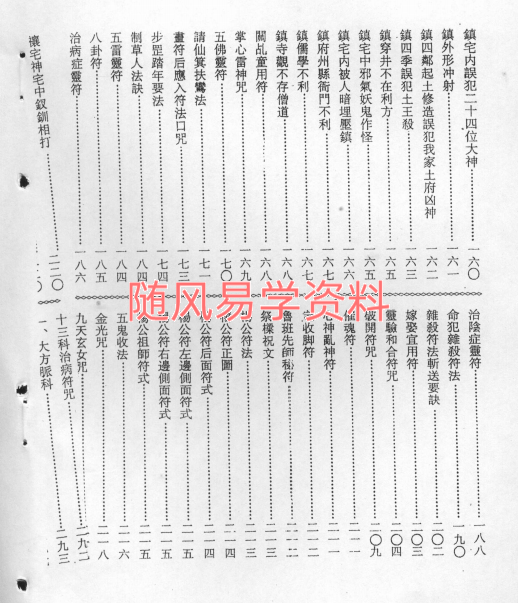 鎮宅内誤犯二十四位大神……一六〇
鎮外形冲射……一六一
鎮四鄰起土修造誤犯我家土府凶神……一六二
鎮四季誤犯土王殺……一六三
鎮穿井不在利方……一六五
鎮宅中邪氣妖鬼作怪……一六五
鎮宅内被人暗埋壓鎮……一六六
鎮府州縣衙門不利……一六七
鎮儒學不利……一六七
鎮寺觀不存僧道……一六八
關乩童用符……一六八
掌心雷神咒……一六九
五佛靈符……一七〇
請仙箕扶鸞法……一七一
畫符后應入符法口咒……一七三
步罡踏年要法……一七四
制草人法訣……一八四
五雷靈符……一八四
八卦符……一八五
治病症靈符……一八六
讓宅神宅中釵釧相打……二二〇
治陰症靈符……一八八
命犯雜殺符法……一九〇
雜殺符法斬送要訣……二〇二
嫁娶宜用符……二〇三
靈驗和合符咒……二〇四
破開符咒……二〇九
催魂符……二一一
心神亂神符……二一一
收脚符……二一二
魯班先師秘符……二一二
祭樑祝文……二一三
公符法……二一三
公符正圖……二一四
公符后面符式……二一四
楊公左邊側面符式……二一五
公符右邊側面符式……二一五
楊公祖師符式……二一五
五鬼收法……二一六
金光咒……二一八
九天玄女咒……二九二
十三科治病符咒……二九三
一、大方脈科
随风易学资料